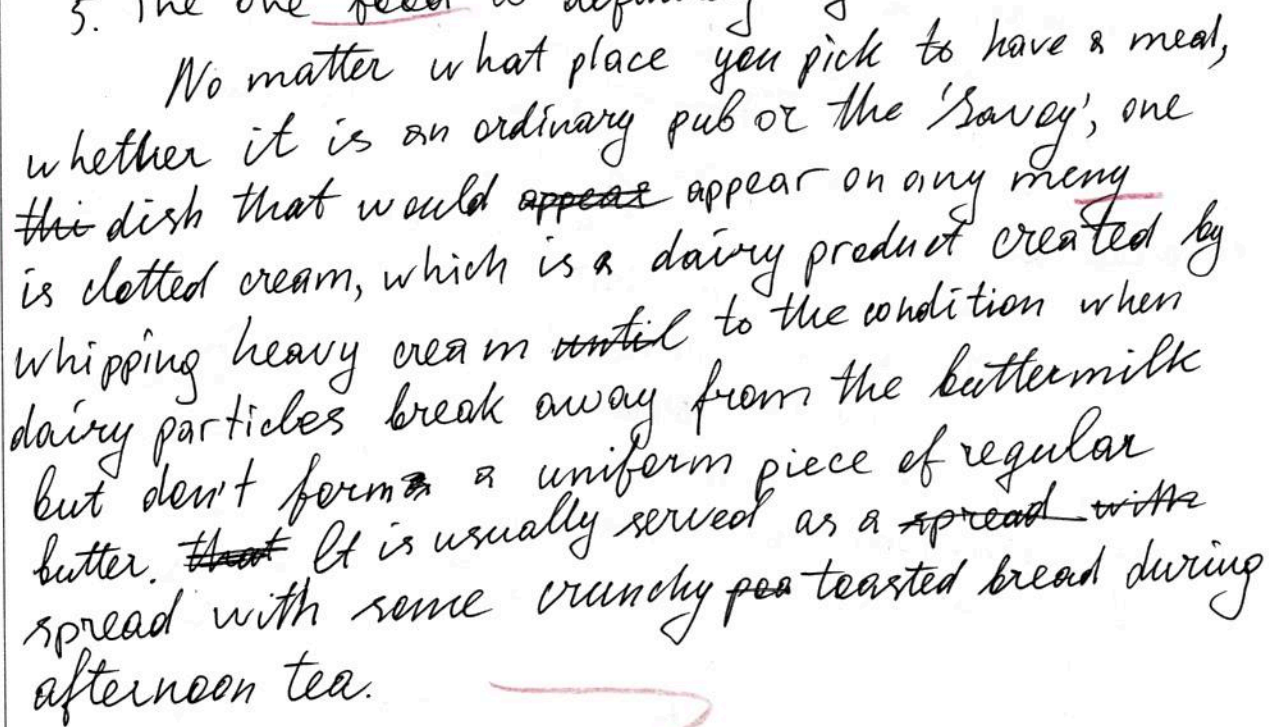 5. The one food is
No matter what place you pick to have a meal,
whether it is an ordinary pub or the 'Savoy', one
thi dish that would appear appear on any meny
is clotted cream, which is a dairy product created by
whipping heavy cream until to the condition when
dairy particles break away from the buttermilk
but don't form a uniform piece of regular
butter. that It is usually served as a spread with
spread with some crunchy toasted bread during
afternoon tea.